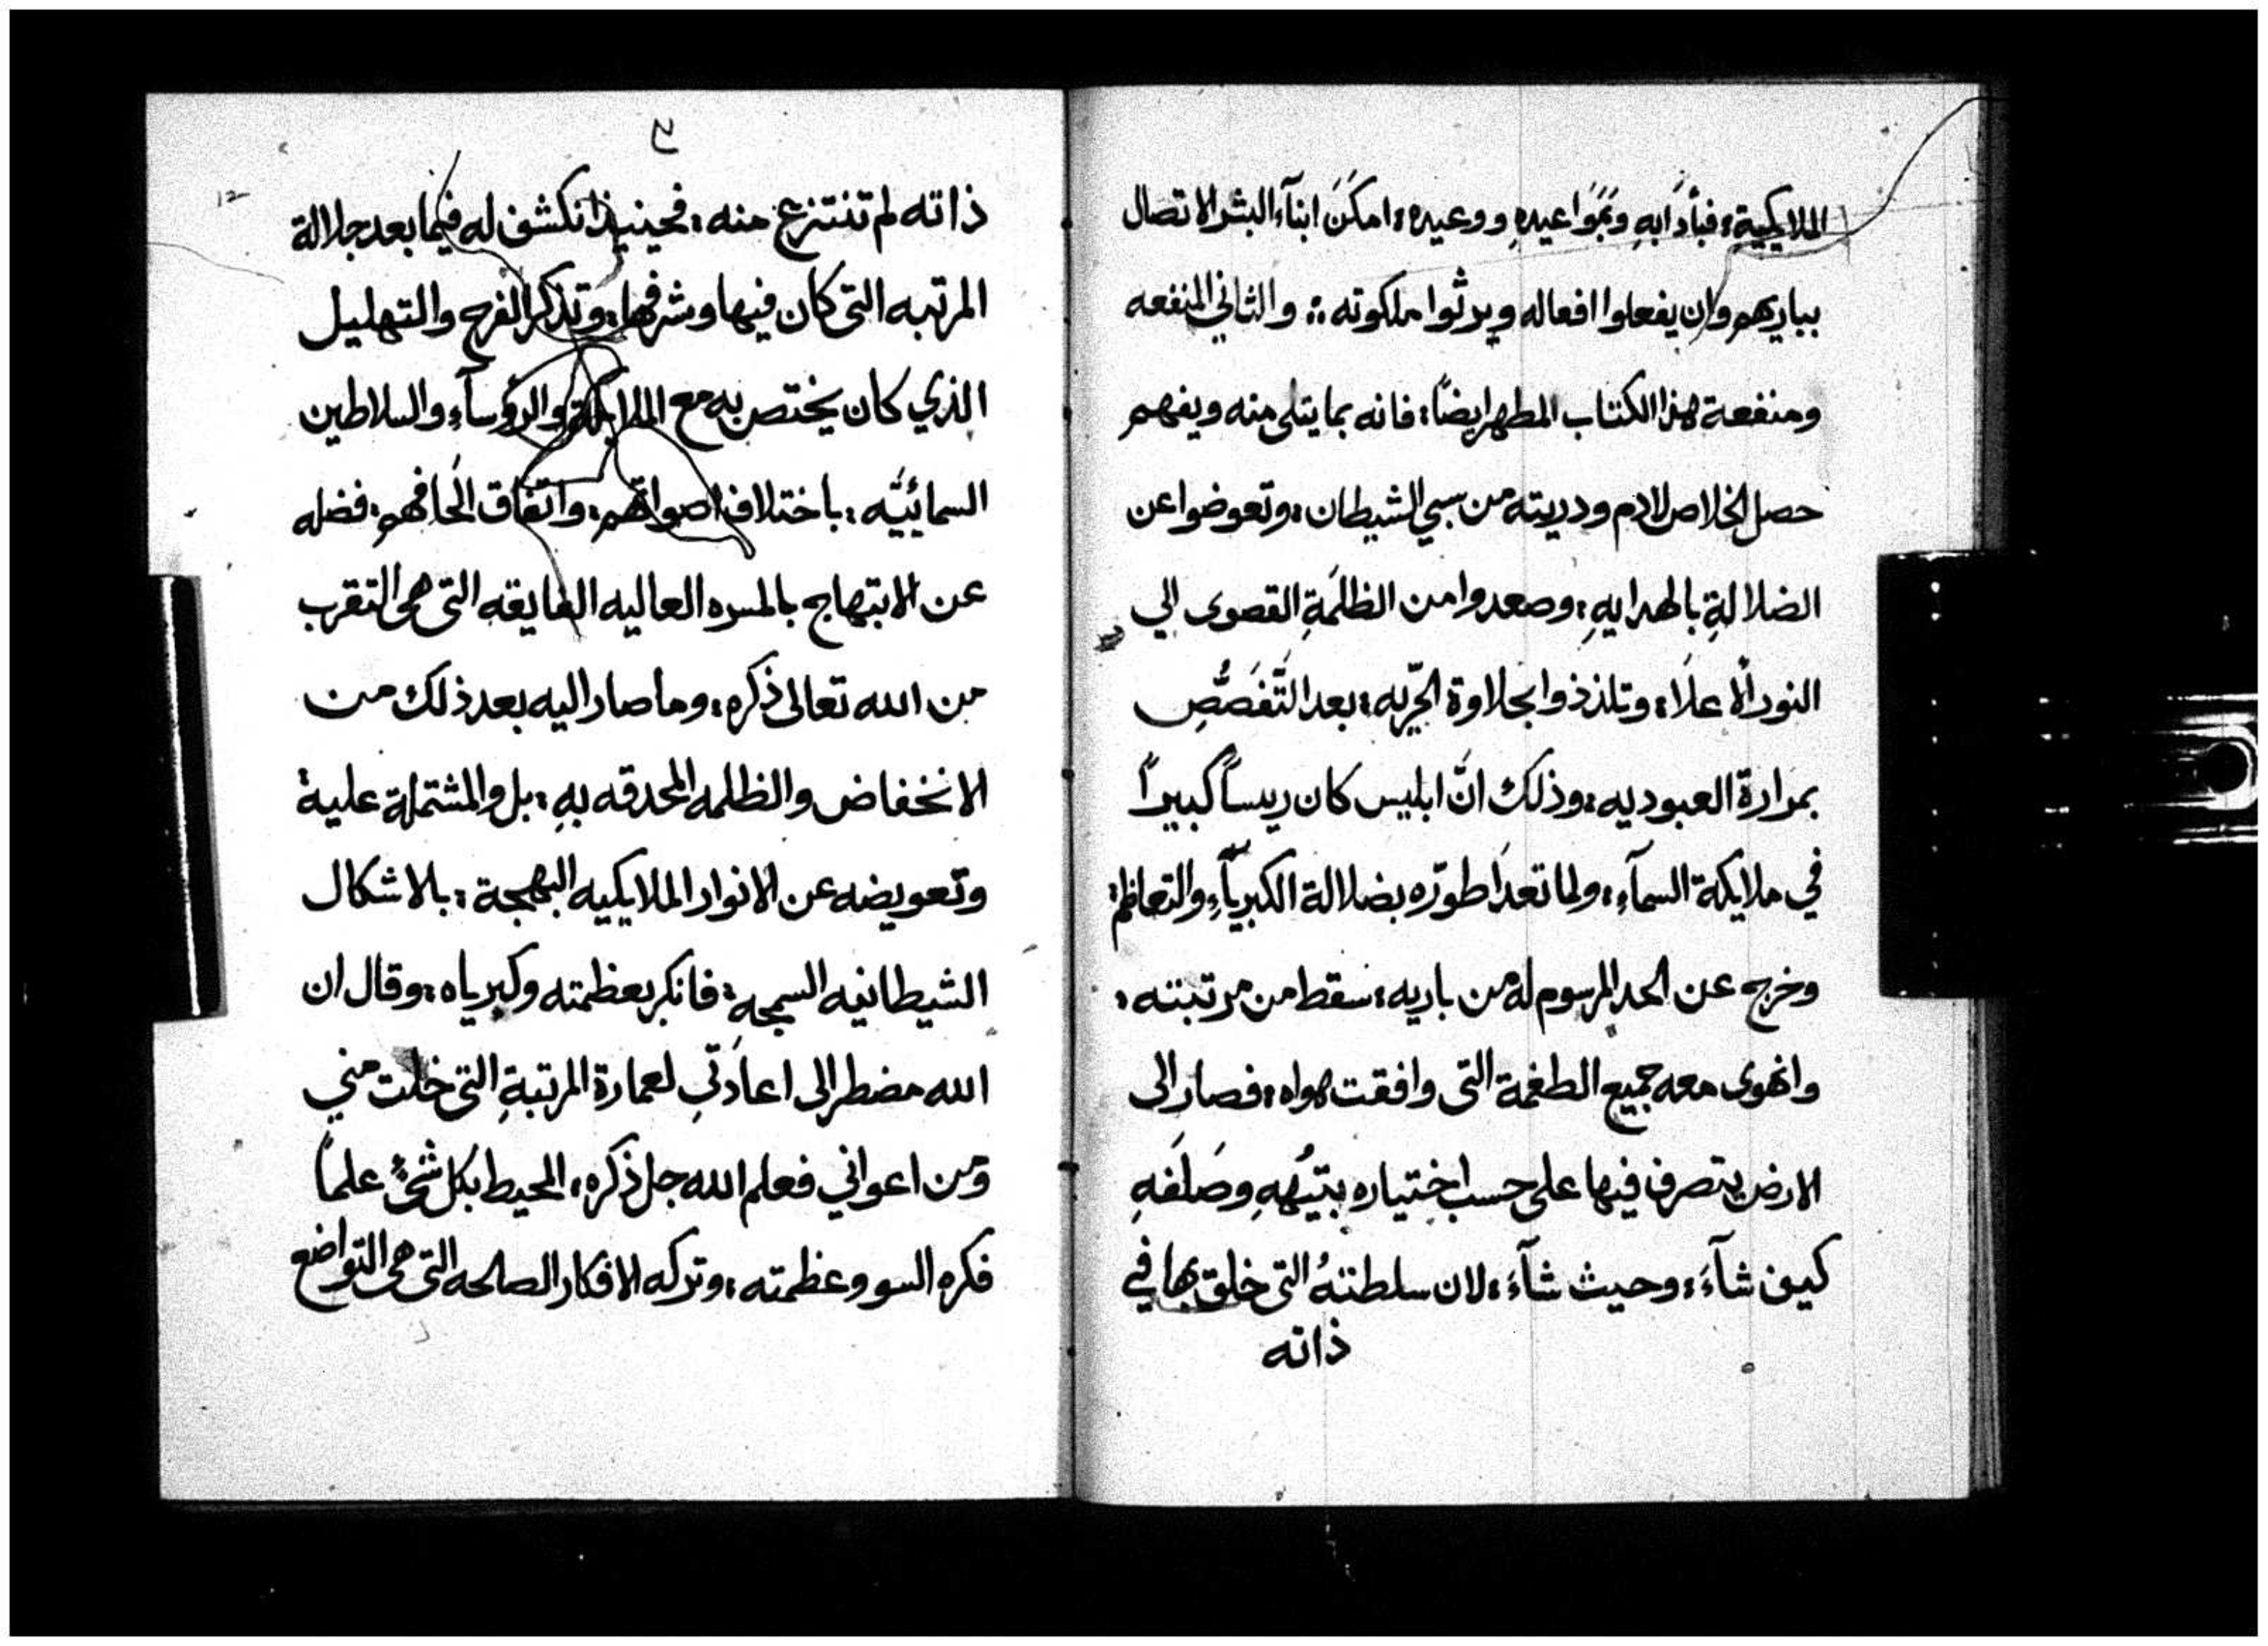 الملايكية: فبأدَابهِ وبمَوَاعيدهِ ووعيده: امكَنَ ابنآء البشر الاتصال
بباريهم وان يفعلوا افعاله ويرثوا ملكوته :: والثاني المنفعه
ومنفعة هذا الكتاب المطهر ايضاً: فانه بما يتلى منه ويفهم
حصل الخلاص لادم ودريته من سبي الشيطان: وتعوضوا عن
الضلالةِ بالهدايهِ: وصعدوا من الظلمَةِ القصوى الي
النور ألاعلَا: وتلذذوا بحلاوة الحّريه: بعد التَّغَصُّصِ
بمرارة العبوديه: وذلك انَّ ابليس كان رييساً كبيراً
في ملايكة السمآء: ولما تعدَا طورّه بضلالة الكبريآءِ والتعاظم:
وخرج عن الحد المرسوم لهُ من باريه: سقط من مرتبته:
وانهوى معه جميع الطغمة التى وافقت هواه: فصار الى
الارض يتصرف فيها على حسب اختياره بتيُهِهِ وصَلَفهِ
كيف شآءَ: وحيث شآءَ: لان سلطتهُ التى خلق بها في
ذاته
ذاته لم تنتزع منه: فحينيذ انكشف له فيما بعد جلالة
المرتبه التى كان فيها وشرفها: وتذكر الفرح والتهليل
الذي كان يختص به مع الملايكة والرؤسآء والسلاطين
السمائيَّه: باختلاف اصواتهم: واتفاق الحَانهم: فضله
عن الابتهاج بالمسره العاليه الفايقه التى هى التقرب
من الله تعالى ذكره: وما صار اليه بعد ذلك من
الانخفاض والظلمه المحدقه بهِ: بل والمشتملة علية
وتعويضه عن الانوار الملايكيه البهجة: بالاشكال
الشيطانيه السمجه: فانكر بعظمته وكبرياه: وقال ان
الله مضطر الى اعادَتّي لعمارة المرتبةِ التى خلت مني
ومن اعواني فعلم الله جل ذكره: المحيط بكل شئٍ علماً
فكره السو وعظمته: وتركه الافكار الصالحه التى هى التواضع